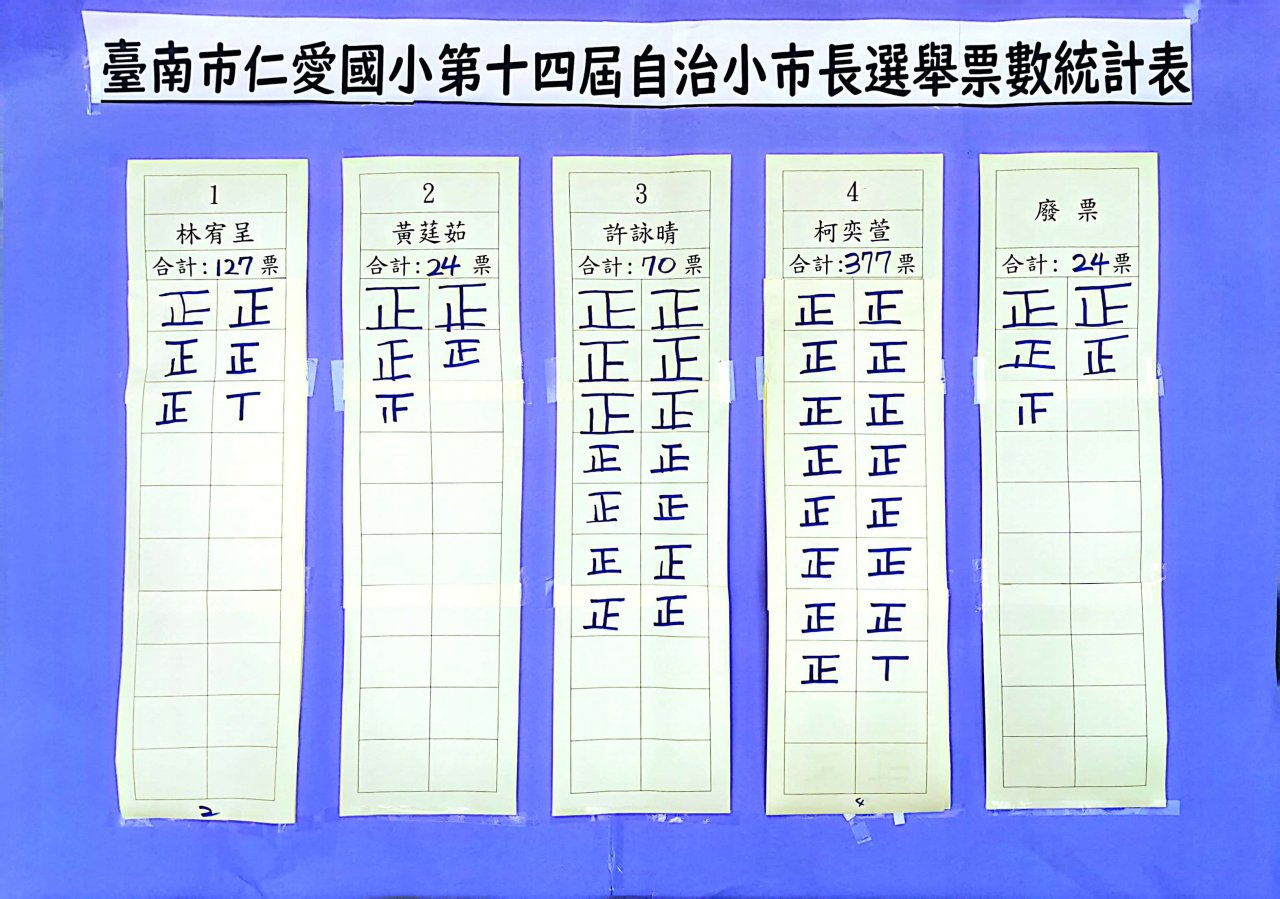 臺南市仁愛國小第十四屆自治小市長選舉票數統計表
1
林宥呈
合計:127票
正 正
正 正
正 丅
2
2
黃莛茹
合計:24票
正 正
正 正
正
3
許詠晴
合計:70票
正 正
正 正
正 正
正 正
正 正
正 正
正 正
4
柯奕萱
合計:377票
正 正
正 正
正 正
正 正
正 正
正 正
正 正
正 丅
4
廢票
合計:24票
正 正
正 正